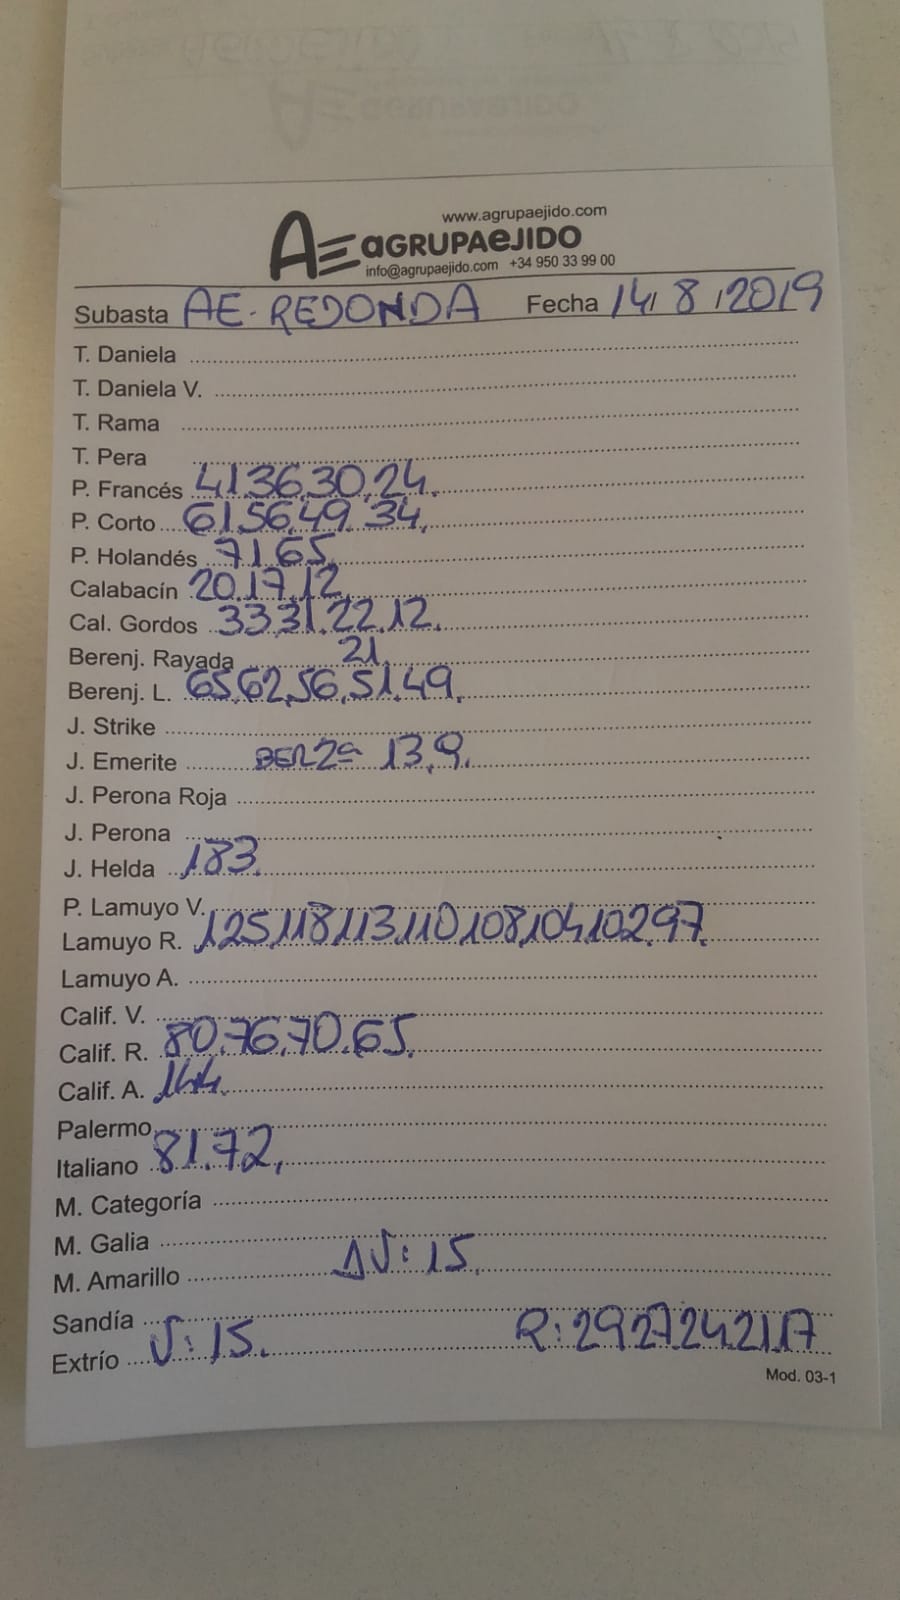 www.agrupaejido.com
AE aGRUPAeJIDO
info@agrupaejido.com +34 950 33 99 00
Subasta AE. REDONDA Fecha 14/8/2019
T. Daniela
T. Daniela V.
T. Rama
T. Pera
P. Francés 41.36.30.24.
P. Corto 61.56.49.34.
P. Holandés 71.65.
Calabacín 20.17.12.
Cal. Gordos 33.31.22.12.
Berenj. Rayada 21.
Berenj. L. 65.62.56.51.49.
J. Strike
J. Emerite BER 2ª 13.9.
J. Perona Roja
J. Perona
J. Helda 183.
P. Lamuyo V.
Lamuyo R. 125.118.113.110.108.104.102.97.
Lamuyo A.
Calif. V.
Calif. R. 80.76.70.65.
Calif. A. 144.
Palermo
Italiano 81.72.
M. Categoría
M. Galia
M. Amarillo
Sandía
Extrío V: 15. R: 29.27.24.21.17
Mod. 03-1